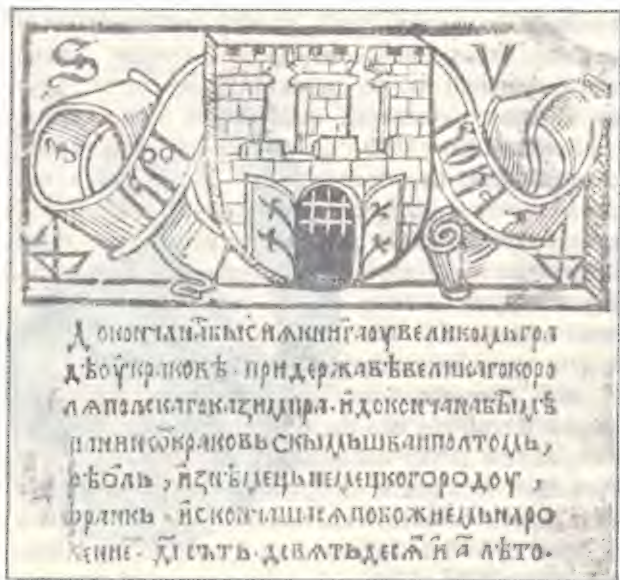 S V
Докончана быс сиѧ книга оу великомь гра
дѣ оу кракове · при державѣ великаго коро
лѧ полскаго казимира · и докончана бы мѣ
щанинѡ краковьскымь шваиполтомь ,
фѣоль , из нѣмець немецкого родоу ,
франкь · и скончашасѧ по божиемь наро
жение · д҃і сътъ · девѧтьдесѧ и а҃ лѣто ·